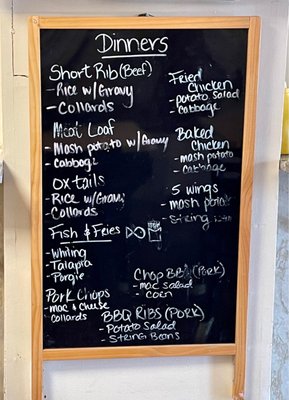 Dinners
Short Rib (Beef)
- Rice w/ Gravy
- Collards
Meat Loaf
- Mash potato w/ Gravy
- Cabbage
Oxtails
Rice w/ Gravy
- Collards
Fish & Fries
- Whiting
- Talapia
- Porgie
Pork Chops
mac & cheese
Collards
Fried
Chicken
- potato salad
- Cabbage
Baked
Chicken
- mash potato
- Cabbage
5 wings
- mash potato
- String
Chop BBQ (Pork)
- mac salad
- corn
BBQ RIBS (PORK)
- Potato Salad
- String Beans